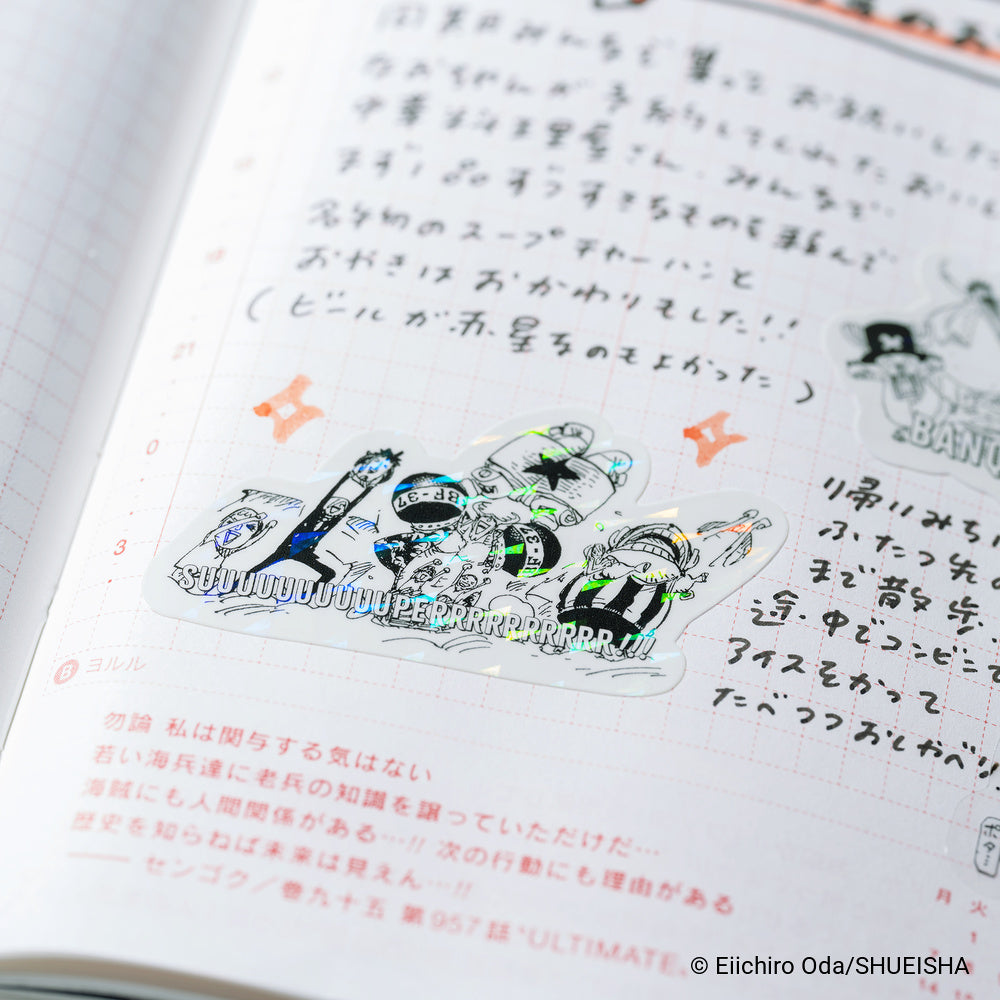 みんなで集って お祝いしした
なおちゃんが予約してくれた おいし
中華料理屋さん。みんなで
まず1品ずつすきなものを頼んで
名物のスープチャーハンと
おやきは おかわりもした!!
(ビールが赤星なのもよかった)
BANU
帰りみちは
ふたつ先の
まで散歩。
途中でコンビニで
アイスをかって
たべつつおしゃべり
21
0
3
BF-37
SUUUUUUUUUUPERRRRRRRRRR!!!
B ヨルル
勿論 私は関与する気はない
若い海兵達に老兵の知識を譲っていただけだ…
海賊にも人間関係がある…!! 次の行動にも理由がある
歴史を知らねば未来は見えん…!!
—— センゴク/巻九十五 第957話“ULTIMATE”
ボタ…
月 火
1
© Eiichiro Oda/SHUEISHA